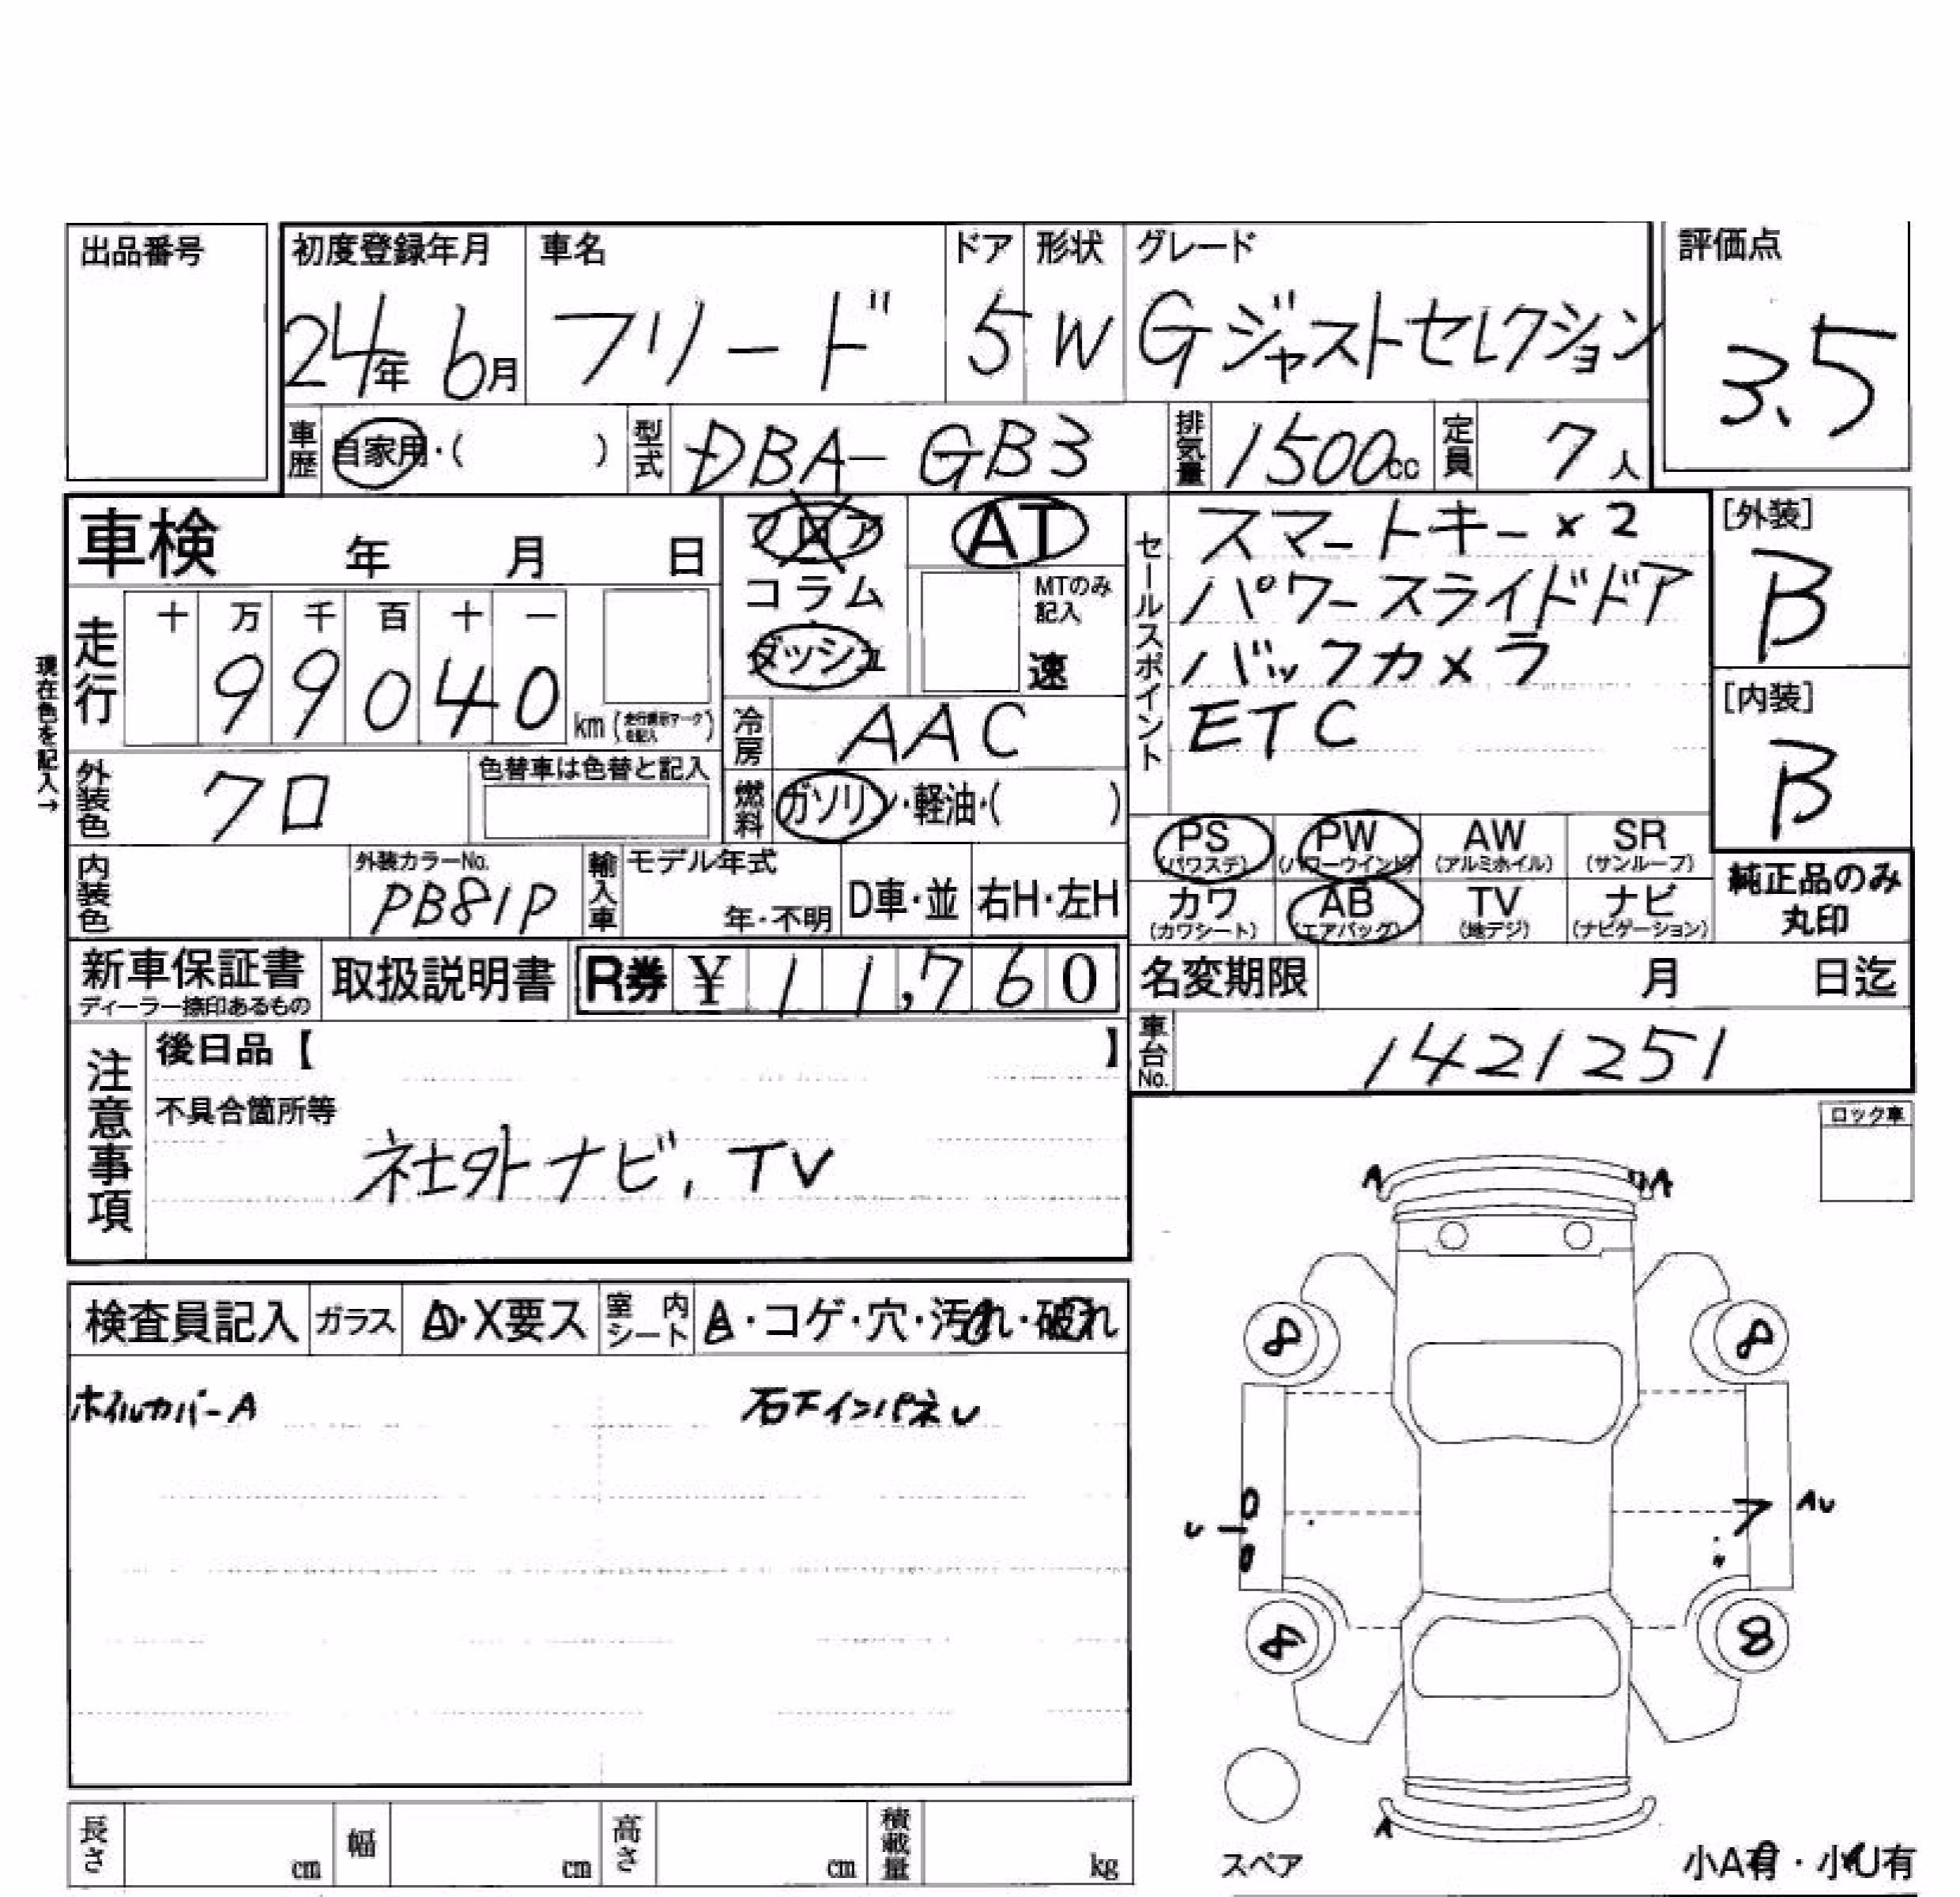 出品番号
初度登録年月 車名 ドア 形状 グレード 評価点
24年 6月 フリード 5 W Gジャストセレクション 3.5
車歴 自家用・( ) 型式 DBA-GB3 排気量 1500cc 定員 7人
車検 年 月 日
フロア AT
コラム MTのみ記入
ダッシュ 速
セールスポイント
スマートキー×2
パワースライドドア
バックカメラ
ETC
[外装]
B
[内装]
B
現在色を記入→
走行 十 万 千 百 十 一
99040 km (走行表示マークを記入)
冷房 AAC
外装色 クロ 色替車は色替と記入
燃料 ガソリン・軽油・( )
PS (パワステ) PW (パワーウインド) AW (アルミホイル) SR (サンルーフ)
カワ (カワシート) AB (エアバッグ) TV (地デジ) ナビ (ナビゲーション)
純正品のみ
丸印
内装色 外装カラーNo. PB81P 輸入車 モデル年式 年・不明 D車・並 右H・左H
新車保証書 取扱説明書 R券 ¥ 11,760
ディーラー捺印あるもの
名変期限 月 日迄
車台No. 1421251
注意事項 後日品【 】
不具合箇所等
社外ナビ, TV
ロック車
検査員記入 ガラス A・X要ス 室内シート A・コゲ・穴・汚れ・破れ
ホイルカバーA
A A
8 8
7
8 8
A
スペア 小A有・小U有
長さ cm 幅 cm 高さ cm 積載量 kg